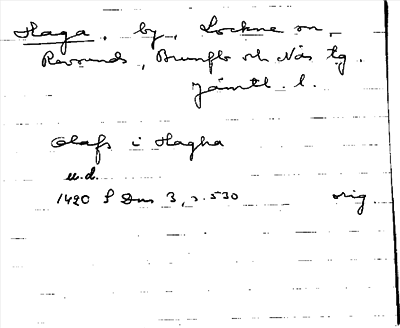 Haga, by, Lockne sn,
Revsunds, Brunflo och Näs tg.
Jämtl. l.
Olafs i Hagha
u.d.
1420 S Dns 3, s. 530 orig